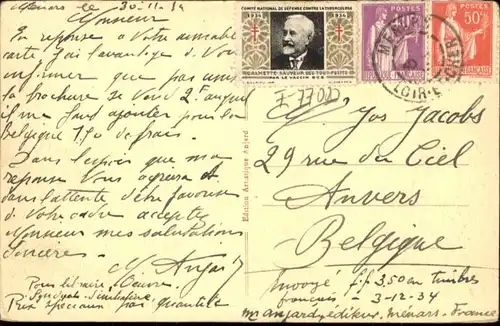 Ménars le 30-11-34
Monsieur
En réponse à votre aimable
carte, j'ai l'avantage de Vous
informer que pas ma
la brochure se vend 2f auquel
il me faut ajouter pour la
Belgique 1,50 de frais.
Dans l'espoir que ma
réponse Vous agréera et
dans l'attente, d'être favorisé
de Votre ordre acceptez
Monsieur mes salutations
sincères.
M. Anjard
Pour libraire, Oeuvre,
Syndicat d'initiative,
Prix spéciaux par quantité
COMITÉ NATIONAL DE DÉFENSE CONTRE LA TUBERCULOSE
1934 1934
CALMETTE SAUVEUR DES TOUT-PETITS
PAR LE VACCIN B C G
50c
POSTES
MENARS
LOIR-ET-CHER
Edition Artistique Anjard
Jos Jacobs
29 rue du Ciel
Anvers
Belgique
Envoyé f.f. 3,50 en timbres
français - 3-12-34
M anjard, éditeur, Ménars - France